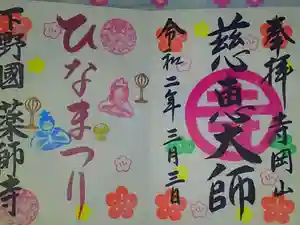 奉拝 寺岡山
慈恵大師
令和二年三月三日
ひなまつり
下野國 薬師寺